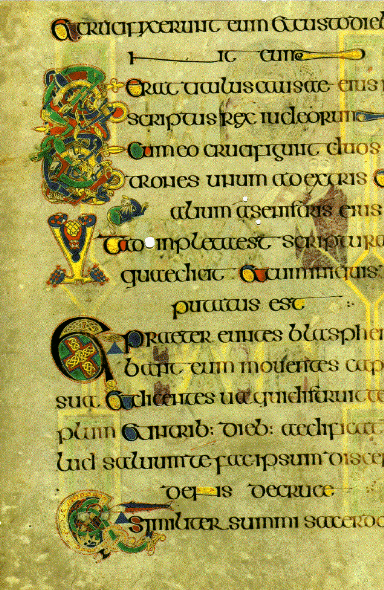 crucifixerunt eum & custodieb
it eum
Erat titulus causae eius
scriptus rex iudeorum
& cum eo crucifigunt duos
trones unum a dextris &
alium a senistris eius
impleta est scriptura
quae dicit & cum iniquis
putatus est
Praeter euntes blasphem
bant eum mouentes cap
sua & dicentes ua qui distruit te
plum & in trib: dieb: aedificat
saluum te fac ipsum discen
decruce
Similiter summi sacerdo